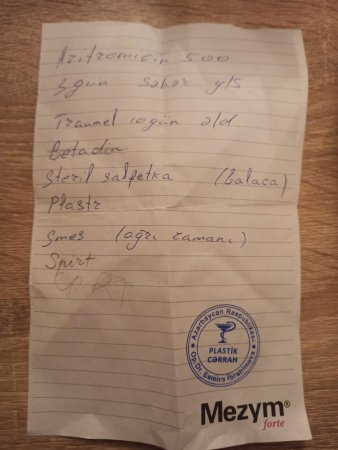 Azitromicin 500
3 gün səhər y/s
Traumel 10 gün ə/d
Betadin
Steril salfetka (balaca)
Plastr.
Smes (ağrı zamanı)
Spirt
Azərbaycan Respublikası
PLASTİK
CƏRRAH
Op. Dr. Esmira İbrahimova
Mezym®
forte